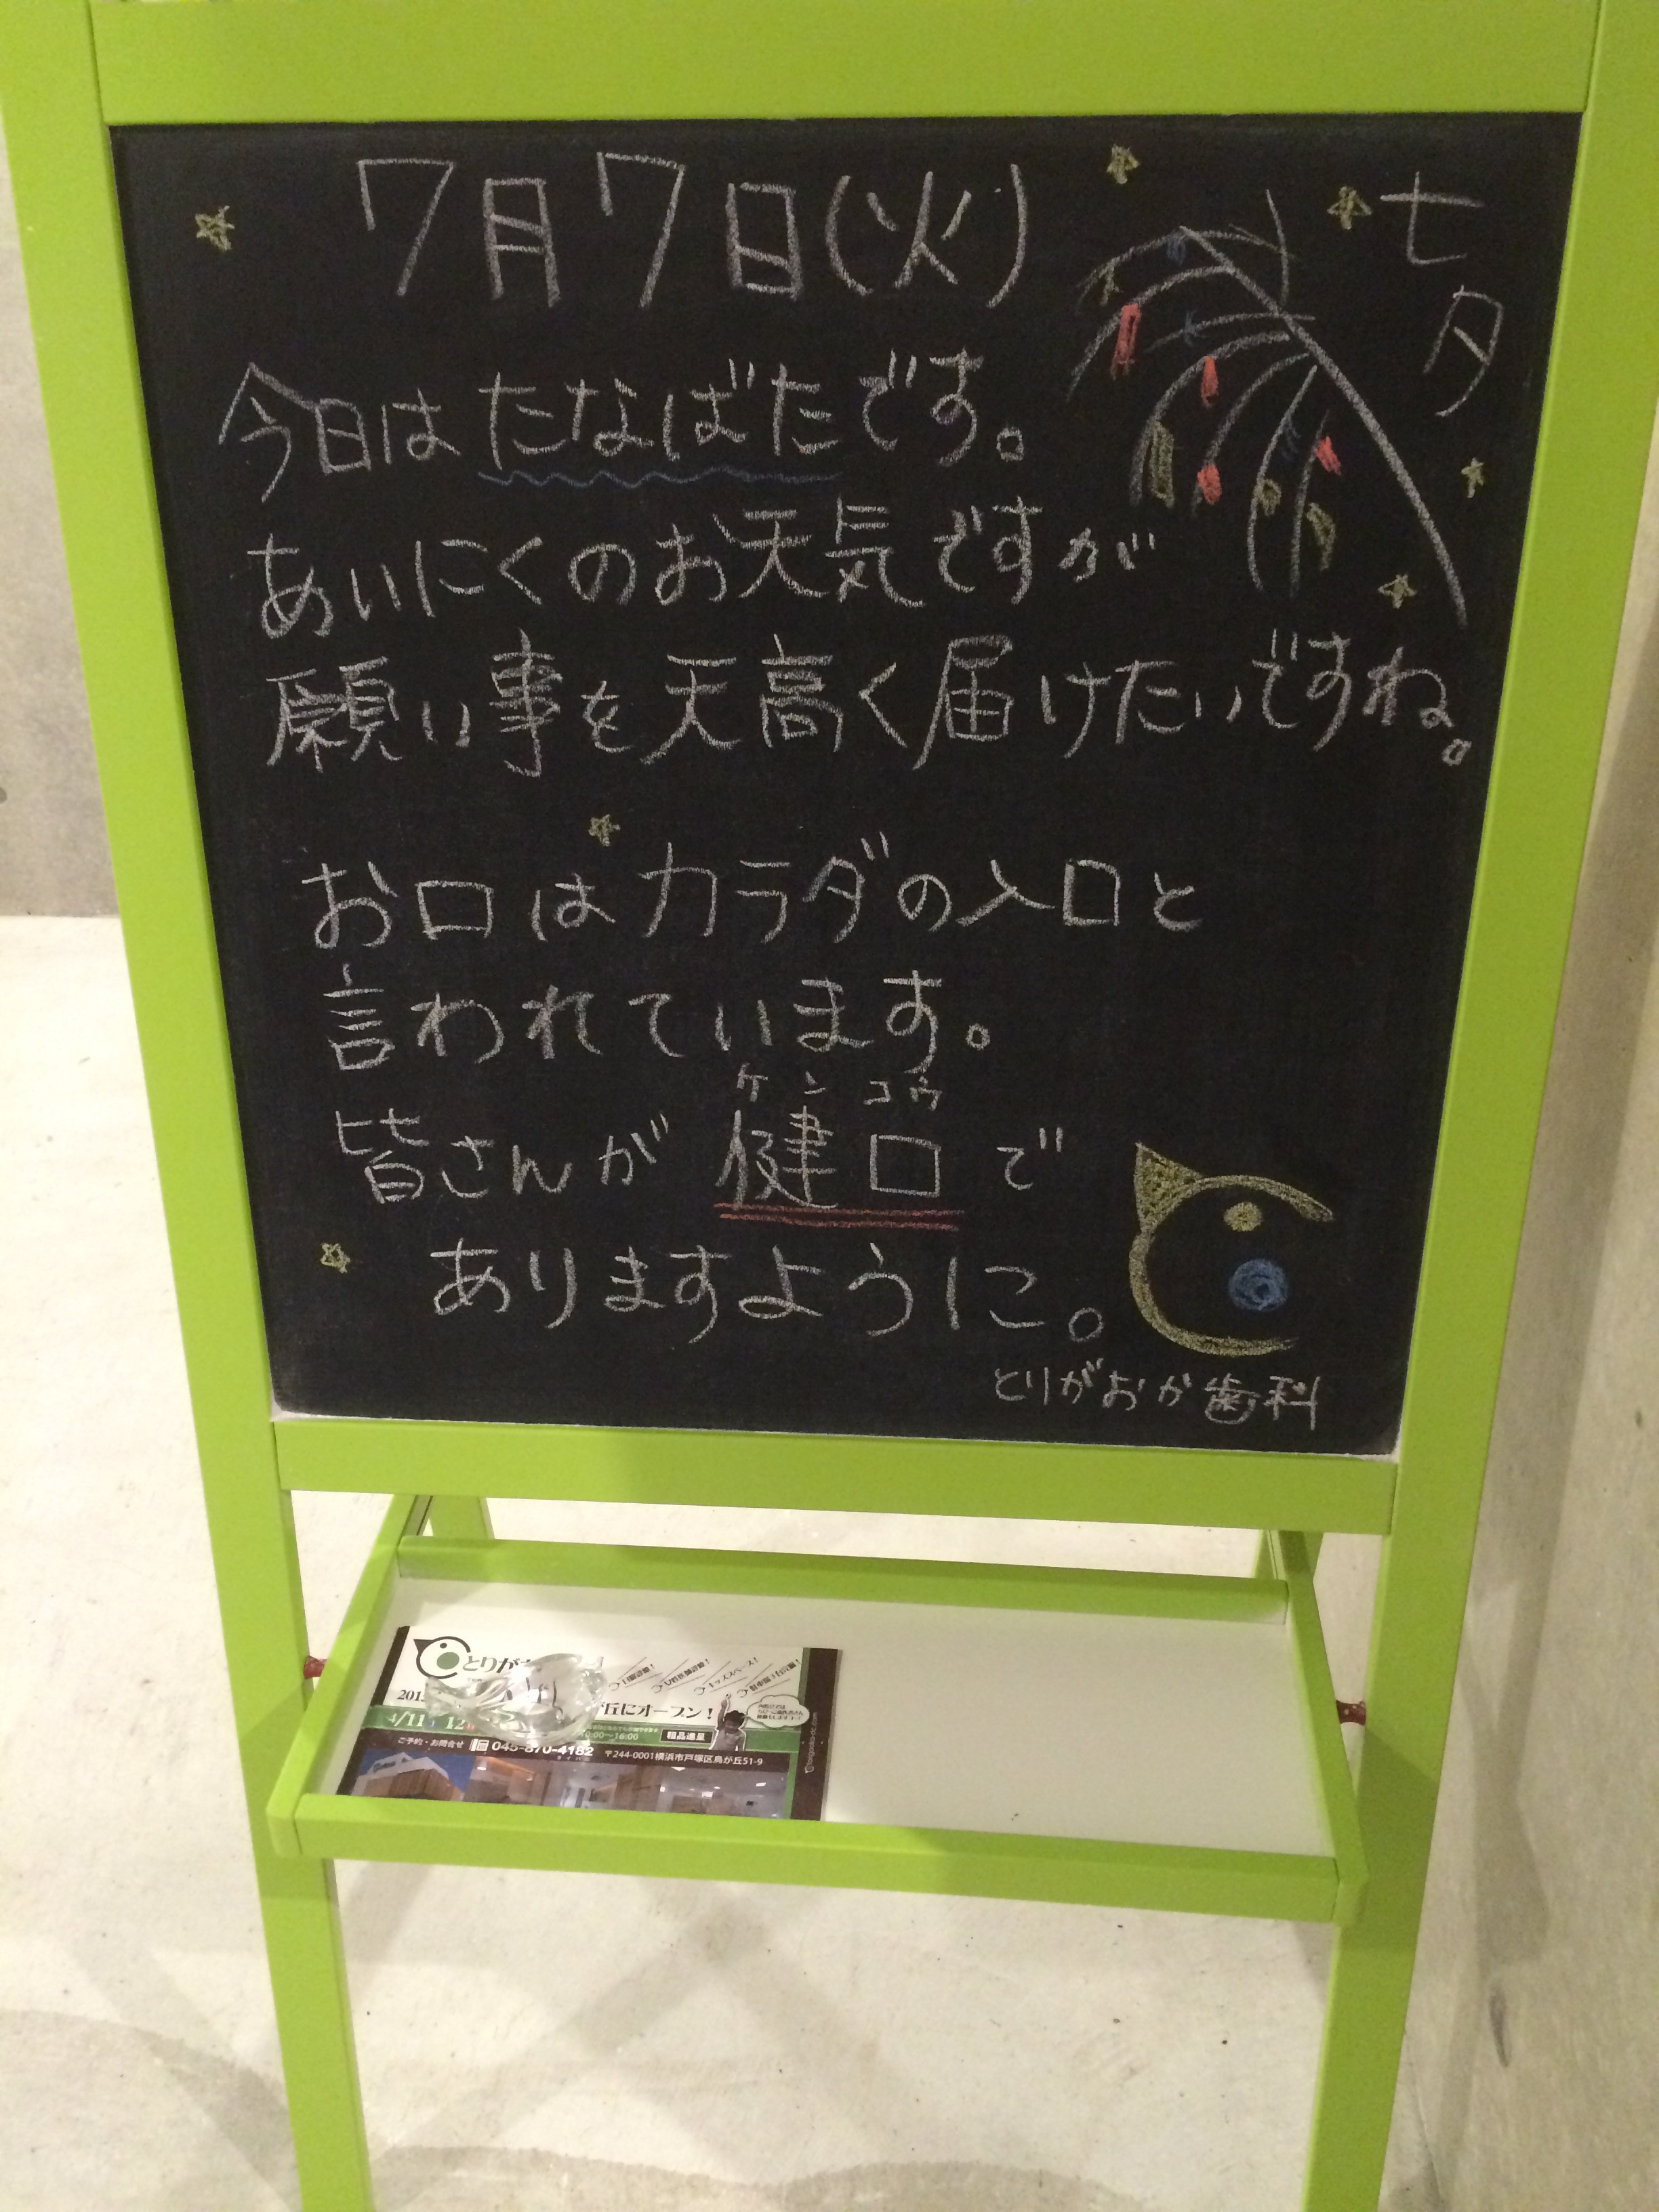 7月7日(火)
七夕
今日はたなばたです。
あいにくのお天気ですが
願い事を天高く届けたいですね。
お口はカラダの入口と
言われています。
ケンコウ
皆さんが健口で
ありますように。
とりがおか歯科
とりが
キッズスペース!
が丘にオープン!
4/11 12
10:00〜16:00
粗品進呈
ご予約・お問合せ
045-870-4182
〒244-0001横浜市戸塚区鳥が丘51-9